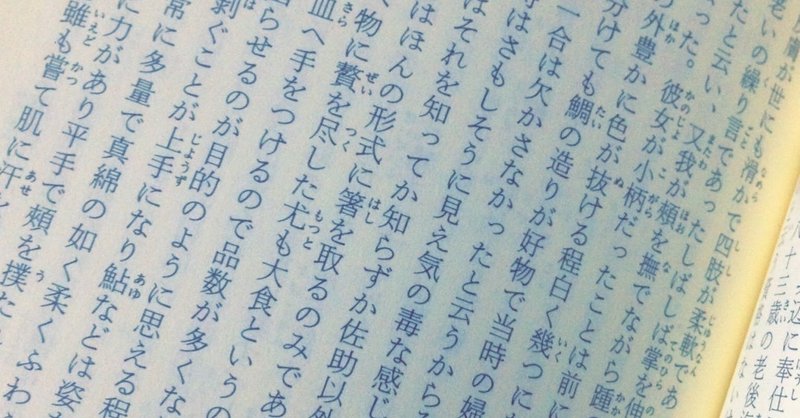 皮膚が世にも滑かで四肢が柔軟であ
老いの繰り言であったしばしば掌を伸
たと云い、又我が頬を撫でながら踵
った。彼女が小柄だったことは前に
の外豊かに色が抜ける程白く幾つに
分けても鯛の造りが好物で当時の婦
一合は欠かさなかったと云うから
時はさもしそうに見え気の毒な感じ
はそれを知ってか知らずか佐助以外
はほんの形式に箸を取るのみであ
物に贅を尽した尤も大食というの
皿へ手をつけるので品数が多くな
らせるのが目的のように思える程
剥ぐことが上手になり鮎などは姿
常に多量で真綿の如く柔くふわ
に力があり平手で頬を撲た
雖も嘗て肌に汗